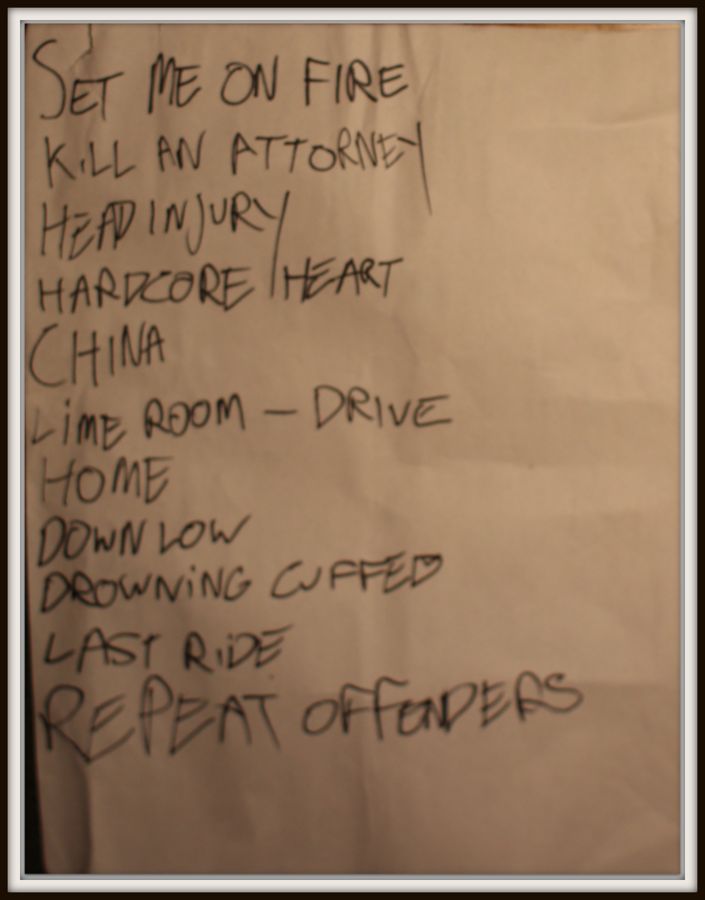 SET ME ON FIRE
KILL AN ATTORNEY
HEAD INJURY
HARDCORE HEART
CHINA
LIME ROOM – DRIVE
HOME
DOWN LOW
DROWNING CUFFED
LAST RIDE
REPEAT OFFENDERS